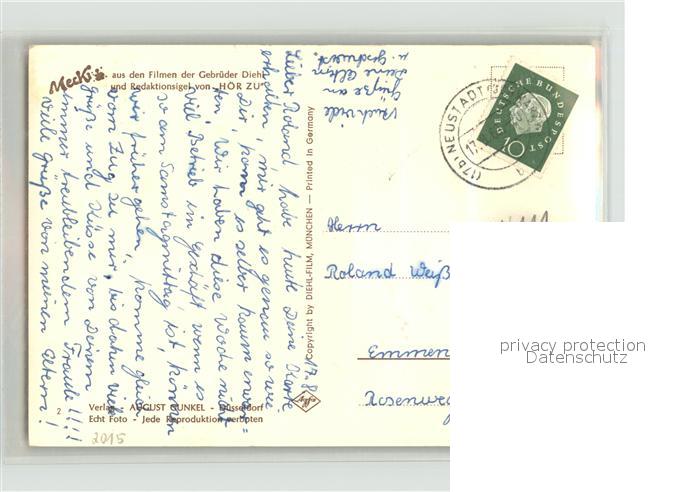 Mecki aus den Filmen der Gebrüder Diehl
und Redaktionsigel von "HÖR ZU"
17. 8.
Lieber Roland habe heute Deine Karte
erhalten, mir geht es genau so wie
Dir, kann es selbst kaum erwar=
ten. Wir haben diese Woche nicht
viel Betrieb im Geschäft wenn es
so am Samstagmittag ist, können
wir früher gehen, komme gleich
vom Zug zu mir, bis dahin viele
Grüße und Küsse von Deinem
immer treubleibendem Traudl!!!!
Viele Grüße von meinen Eltern!
Auch viele
Grüße an
Deine Eltern
u. Geschwister.
Copyright by DIEHL-FILM, MÜNCHEN — Printed in Germany
DEUTSCHE BUNDESPOST
10
(17b) NEUSTADT
Herrn
Roland Weiß
Emmen
Rosenweg
Agfa
2
Verlag AUGUST GUNKEL - Düsseldorf
Echt Foto - Jede Reproduktion verboten
2015
privacy protection
Datenschutz